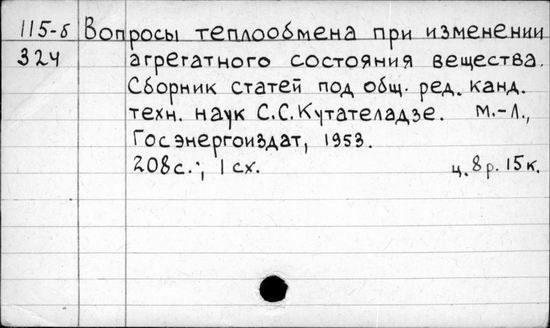 115-б Вопросы теплообмена при изменении
324 агрегатного состояния вещества.
Сборник статей под общ. ред. канд.
техн. наук С.С. Кутателадзе. М.-Л.,
Госэнергоиздат, 1953.
208с.; 1 сх. ц. 8р. 15к.